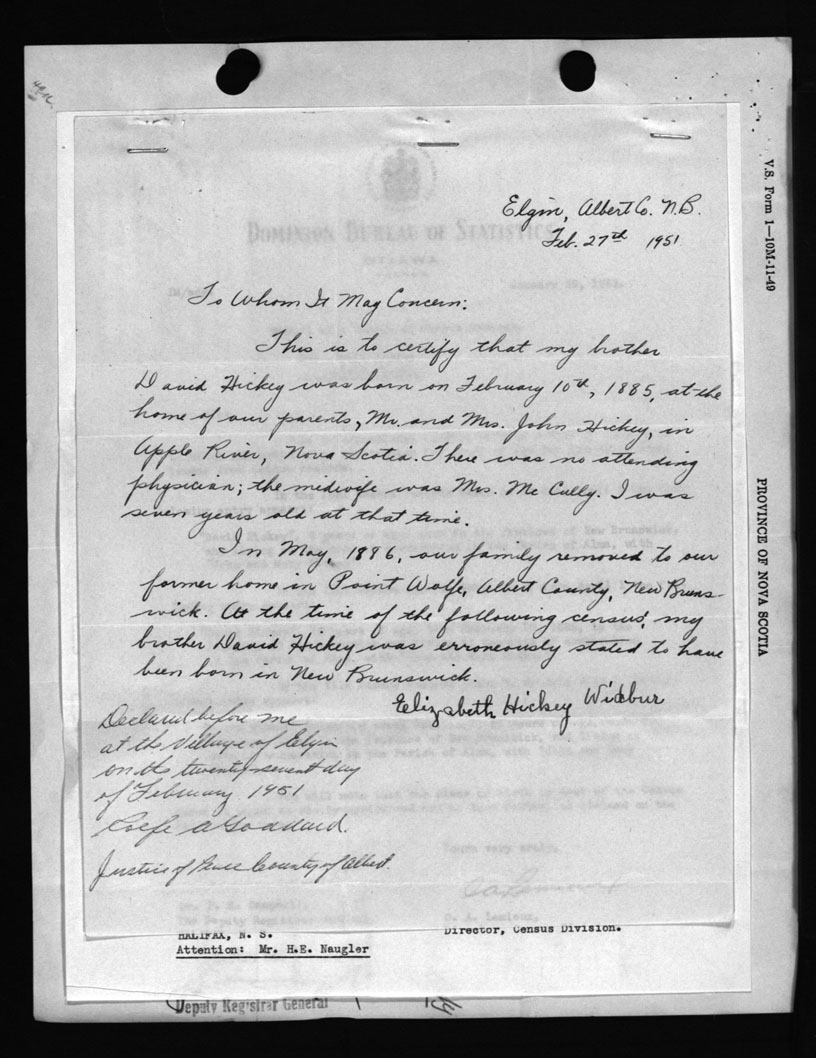 Elgin, Albert Co. N.B.
Feb. 27th 1951
DOMINION BUREAU OF STATISTICS
OTTAWA
To Whom It May Concern:
This is to certify that my brother
David Hickey was born on February 10th, 1885, at the
home of our parents, Mr. and Mrs. John Hickey, in
Apple River, Nova Scotia. There was no attending
physician; the midwife was Mrs. McCully. I was
seven years old at that time.
In May, 1886, our family removed to our
former home in Point Wolfe, Albert County, New Bruns-
wick. At the time of the following census, my
brother David Hickey was erroneously stated to have
been born in New Brunswick.
Elizabeth Hickey Wilbur
Declared before me
at the Village of Elgin
on the twenty-seventh day
of February 1951
Rolfe A Goddard.
Justice of Peace County of Albert.
Yours very truly,
O. A. Lemieux,
Director, Census Division.
HALIFAX, N. S.
Attention: Mr. H.E. Naugler
Deputy Registrar General
V.S. Form 1—10M-11-49
PROVINCE OF NOVA SCOTIA